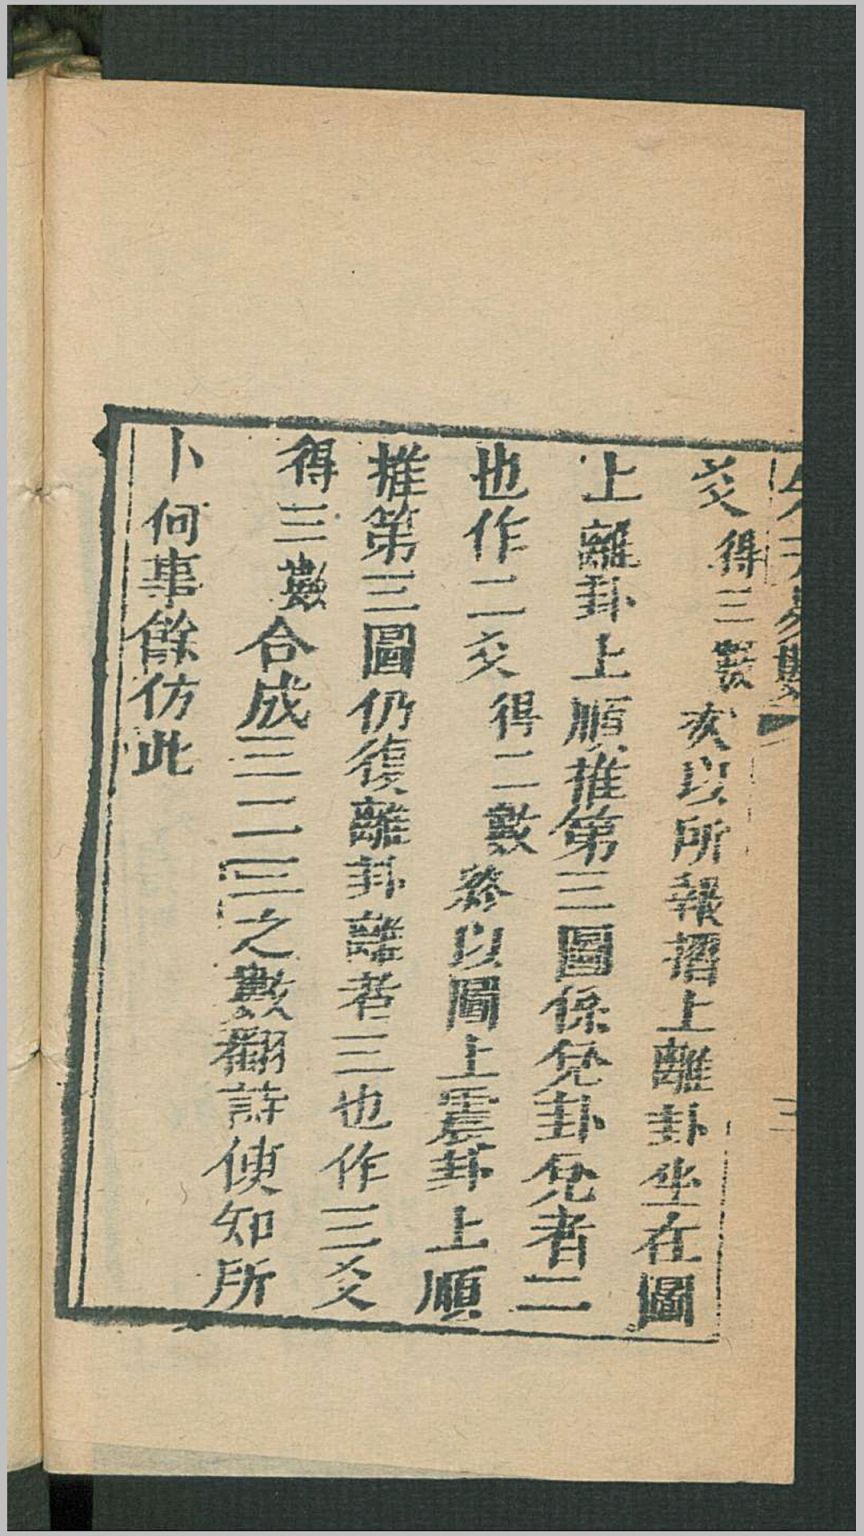 先天易數
三
爻得三數次以所報摺上離卦坐在圖
上離卦上順推第三圖係兌卦兌者二
也作二爻得二數終以圖上震卦上順
推第三圖仍復離卦離者三也作三爻
得三數合成三二三之數翻詩便知所
卜何事餘仿此